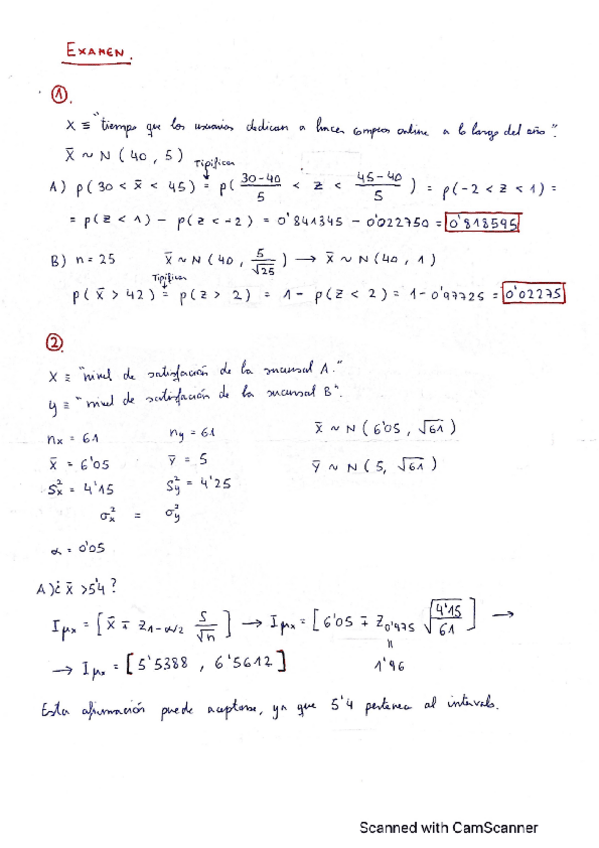 EXAMEN.
①.
X ≡ "tiempo que los usuarios dedican a hacer compras online a lo largo del año".
X̄ ~ N ( 40 , 5 )
Tipificar
A) p( 30 < x̄ < 45 ) = p( 30-40/5 < z < 45-40/5 ) = p( -2 < z < 1 ) =
= p( z < 1 ) - p( z < -2 ) = 0'841345 - 0'022750 = 0'818595
B) n = 25 X̄ ~ N ( 40 , 5/√25 ) → X̄ ~ N ( 40 , 1 )
Tipificar
p( x̄ > 42 ) = p( z > 2 ) = 1 - p( z < 2 ) = 1 - 0'97725 = 0'02275
②.
X ≡ "nivel de satisfacción de la sucursal A."
y ≡ "nivel de satisfacción de la sucursal B".
nx = 61 ny = 61 X̄ ~ N ( 6'05 , √61 )
X̄ = 6'05 Ȳ = 5 Ȳ ~ N ( 5, √61 )
S²x = 4'15 S²y = 4'25
σ²x = σ²y
α = 0'05
A) ¿ x̄ > 5'4 ?
Iμx = [ x̄ ∓ z1-α/2 S/√n ] → Iμx = [ 6'05 ∓ z0'975 √4'15/61 ] →
"
1'96
→ Iμx = [ 5'5388 , 6'5612 ]
Esta afirmación puede aceptarse, ya que 5'4 pertenece al intervalo.
Scanned with CamScanner